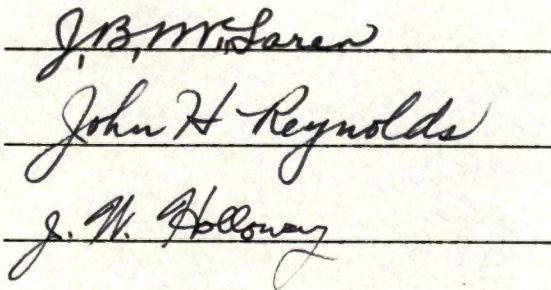 J. B. McLaren
John H Reynolds
J. W. Holloway